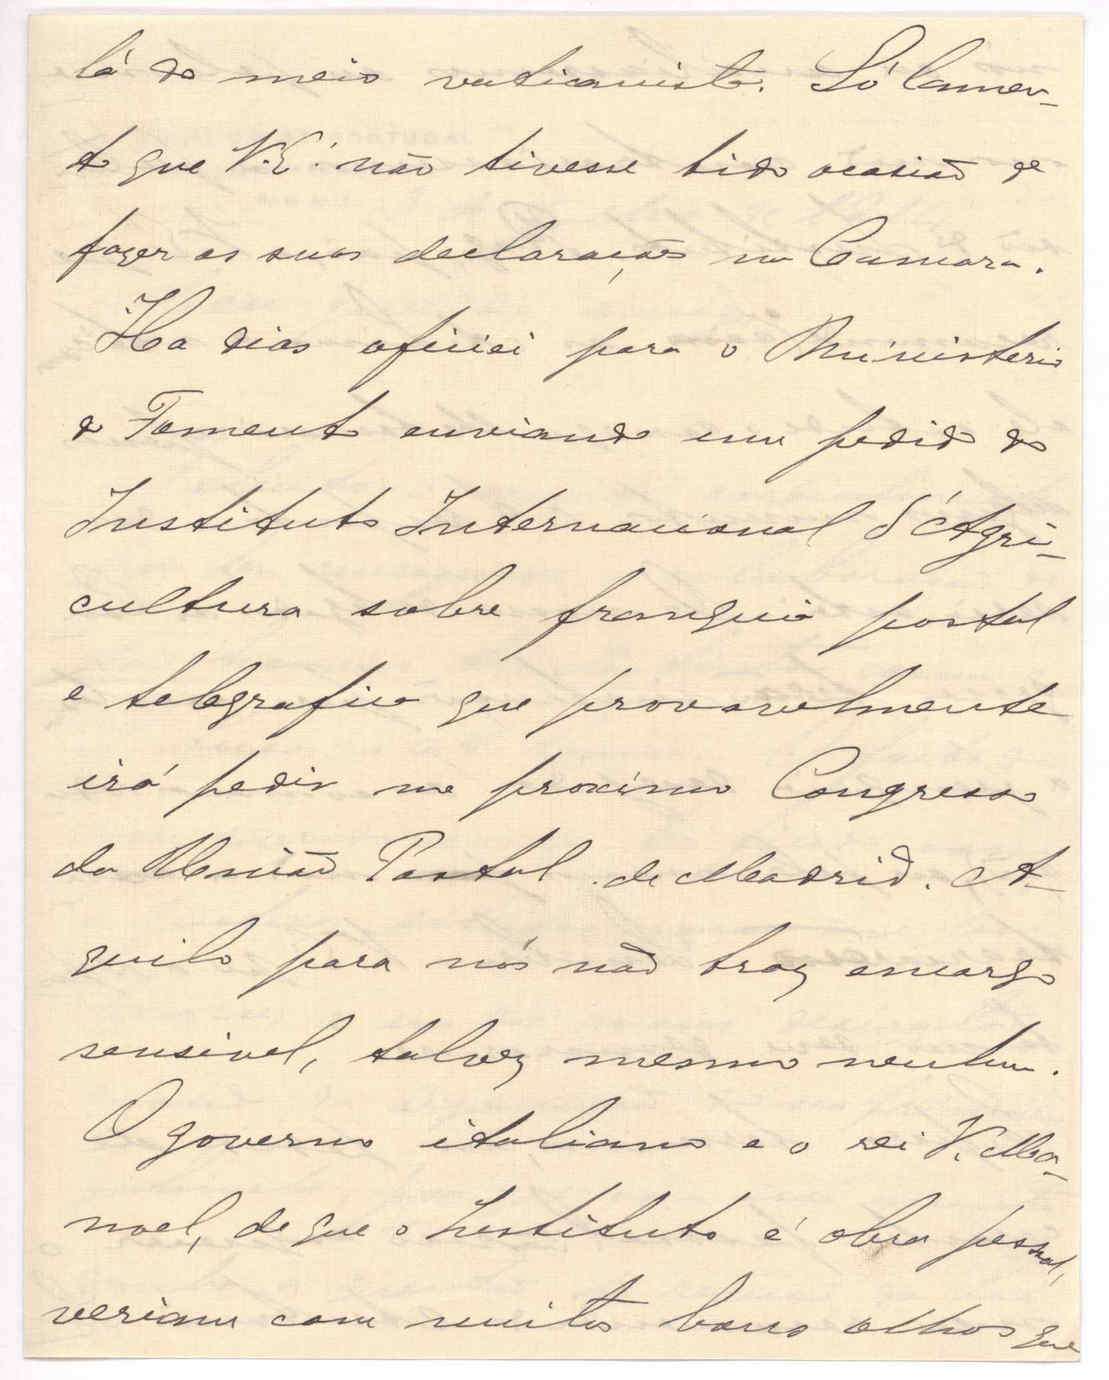 lá do meio vaticanista. Só lamen-
to que V. Ex.ª não tivesse tido ocasião de
fazer as suas declarações na Camara.
Ha dias oficiei para o Ministerio
do Fomento enviando um pedido do
Instituto Internacional d'Agri-
cultura sobre franquia postal
e telegrafica que provavelmente
irá pedir no proximo Congresso
da União Postal de Madrid. A-
quilo para nós não traz encargo
sensivel, talvez mesmo nenhum.
O governo italiano e o rei V. Ma-
noel, de que o Instituto é obra pessoal,
veriam com muitos bons olhos que